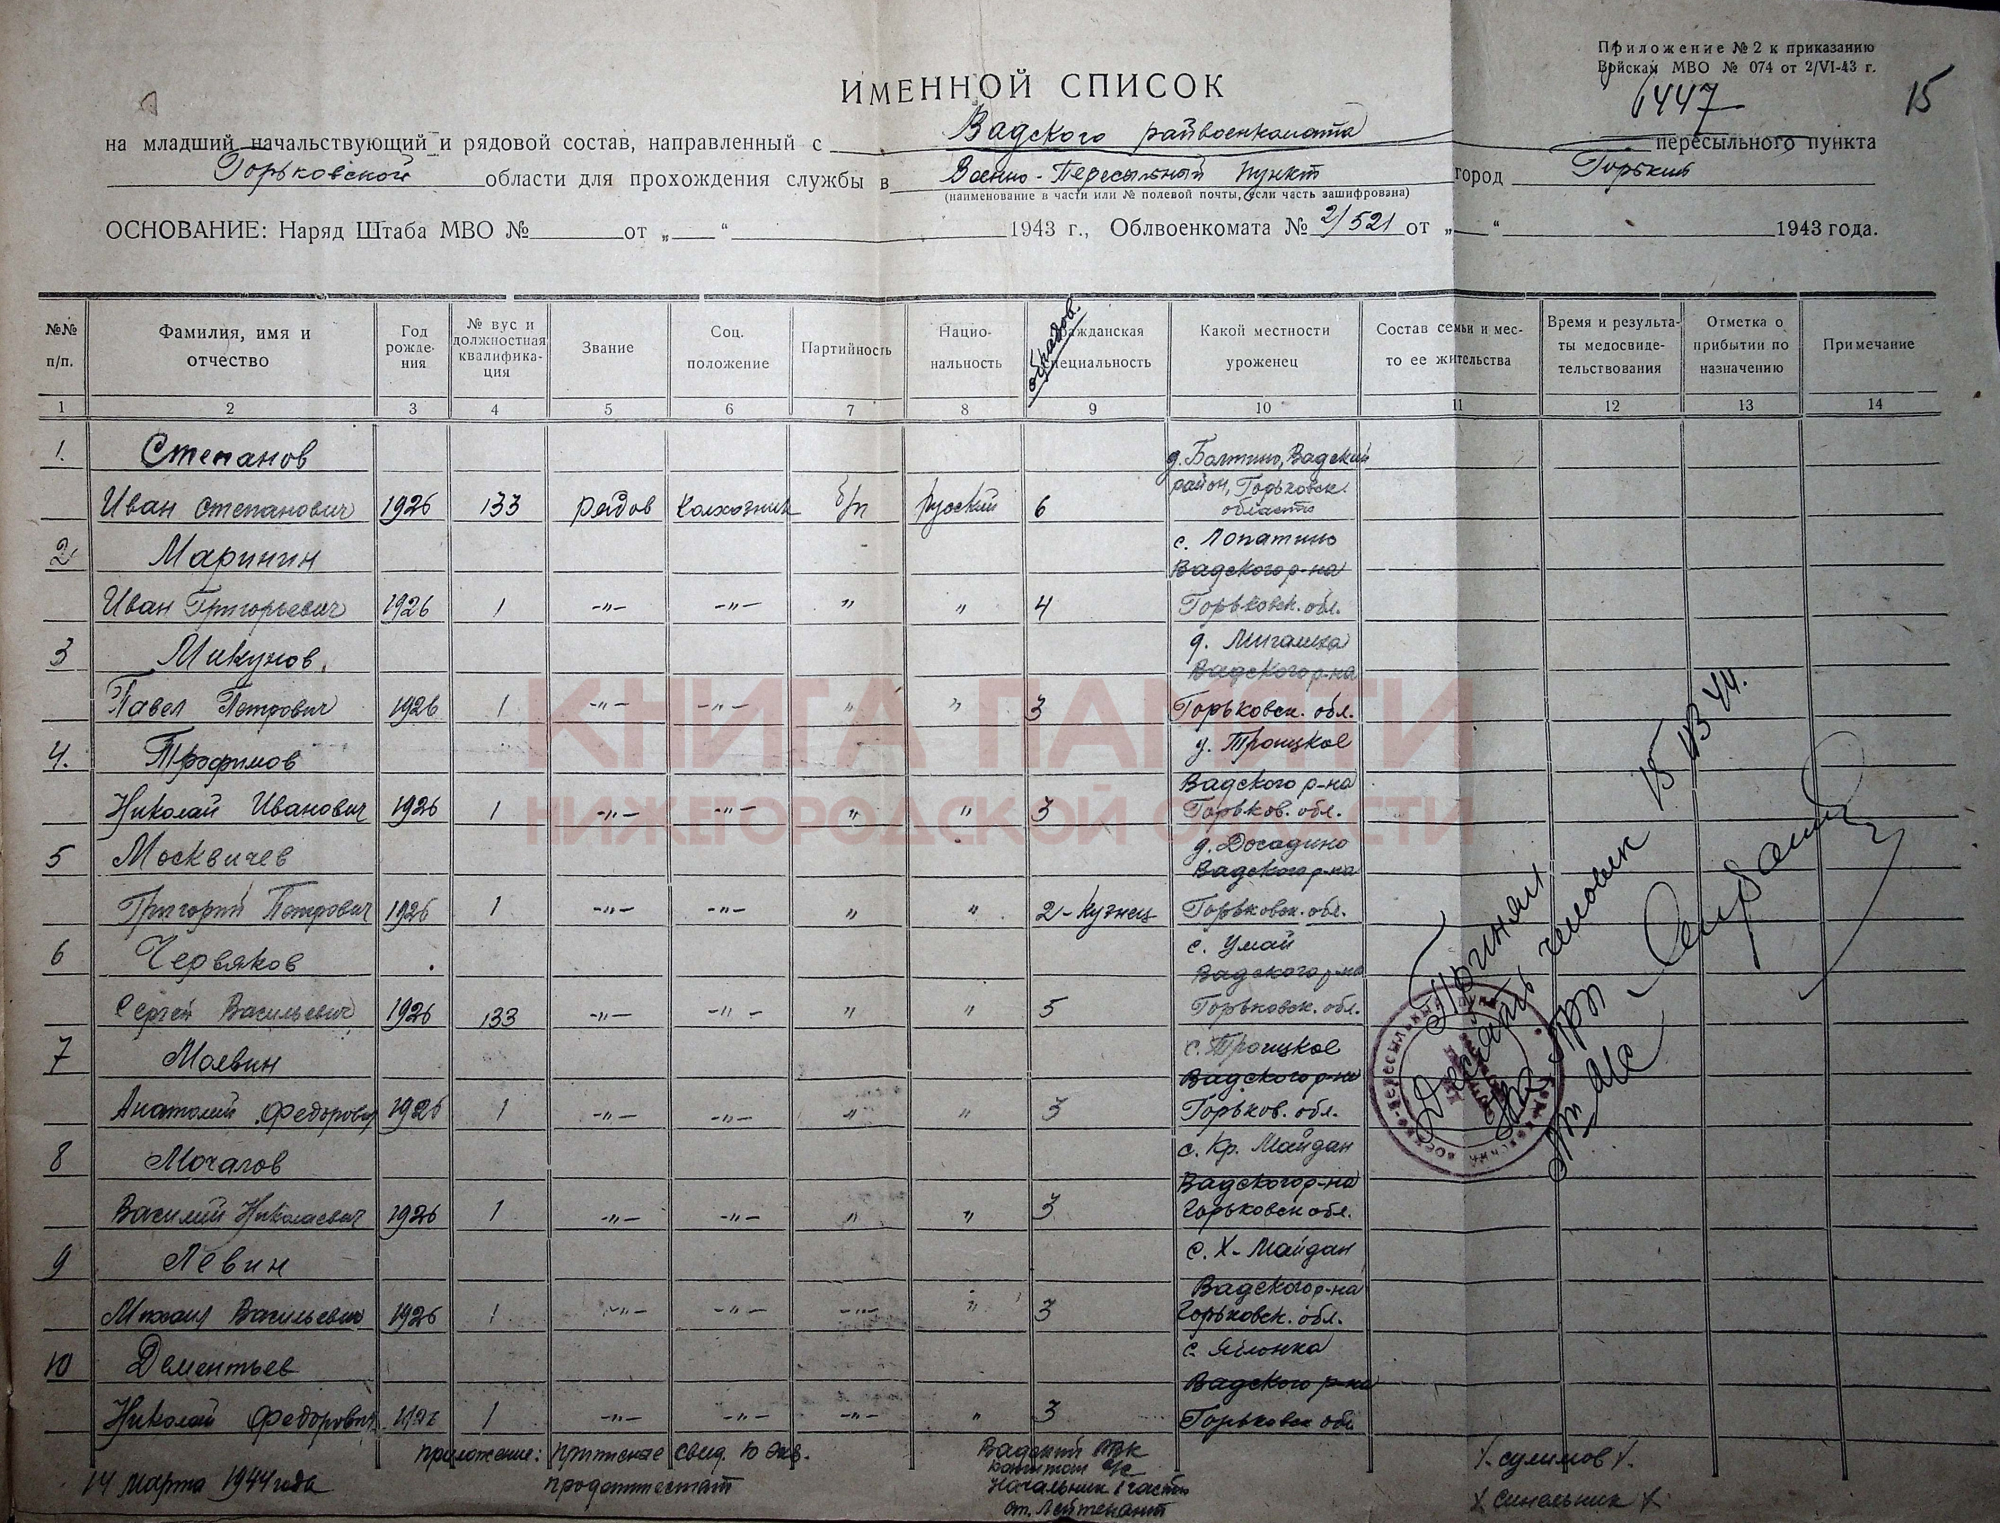 Приложение № 2 к приказанию
Войскам МВО № 074 от 2/VI-43 г.
6447
15
ИМЕННОЙ СПИСОК
на младший начальствующий и рядовой состав, направленный с Вадского райвоенкомата пересыльного пункта
Горьковской области для прохождения службы в Военно-Пересыльный пункт город Горький
(наименование в части или № полевой почты, если часть зашифрована)
ОСНОВАНИЕ: Наряд Штаба МВО № от „ “ 1943 г., Облвоенкомата № 2/521 от „ “ 1943 года.
№№ п/п. Фамилия, имя и отчество Год рожде-ния № вус и должностная квалифика-ция Звание Соц. положение Партийность Нацио-нальность Гражданская специальность образов. Какой местности уроженец Состав семьи и мес-то ее жительства Время и результа-ты медосвиде-тельствования Отметка о прибытии по назначению Примечание
1 2 3 4 5 6 7 8 9 10 11 12 13 14
1. Степанов д. Болтино, Вадский
район, Горьковск.
Иван Степанович 1926 133 рядов колхозник б/п русский 6 области
2. Маринин с. Лопатино
Вадского р-на
Иван Григорьевич 1926 1 -„- -„- „ „ 4 Горьковск. обл.
3 Микунов. д.
Вадского р-на
Павел Петрович 1926 1 -„- -„- „ „ 3 Горьковск. обл.
4. Трофимов Троицкое
Вадского р-на
Николай Иванович 1926 1 -„- -„- „ „ 3 Горьков. обл.
5 Москвичев д. Досадино
Вадского р-на
Григорий Петрович 1926 1 -„- -„- „ „ 2-кузнец Горьковск. обл.
6 Червяков с. Умай
Вадского р-на
Сергей Васильевич 1926 133 -„- -„- „ „ 5 Горьковск. обл.
7 Молвин с. Троицкое
Вадского р-на
Анатолий Федорович 1926 1 -„- -„- „ „ 3 Горьков. обл.
8 Мочалов с. Кр. Майдан
Вадского р-на
Василий Николаевич 1926 1 -„- -„- „ „ 3 Горьковск обл.
9 Левин с. Х-Майдан
Вадского р-на
Михаил Васильевич 1926 1 -„- -„- -„- „ 3 Горьковск. обл.
10 Дементьев с. Яблонка
Вадского р-на
Николай Федорович 1926 1 -„- -„- -„- „ 3 Горьковск обл
Принял
Десять человек
15
44.
КНИГА ПАМЯТИ
НИЖЕГОРОДСКОЙ ОБЛАСТИ
приложение: приписные свид. 10 экз.
продаттестат
14 марта 1944 года
Вадский РВК
капитан
Начальник 1 части
ст. Лейтенант
/. Сулимов /.
/. Синельник /.